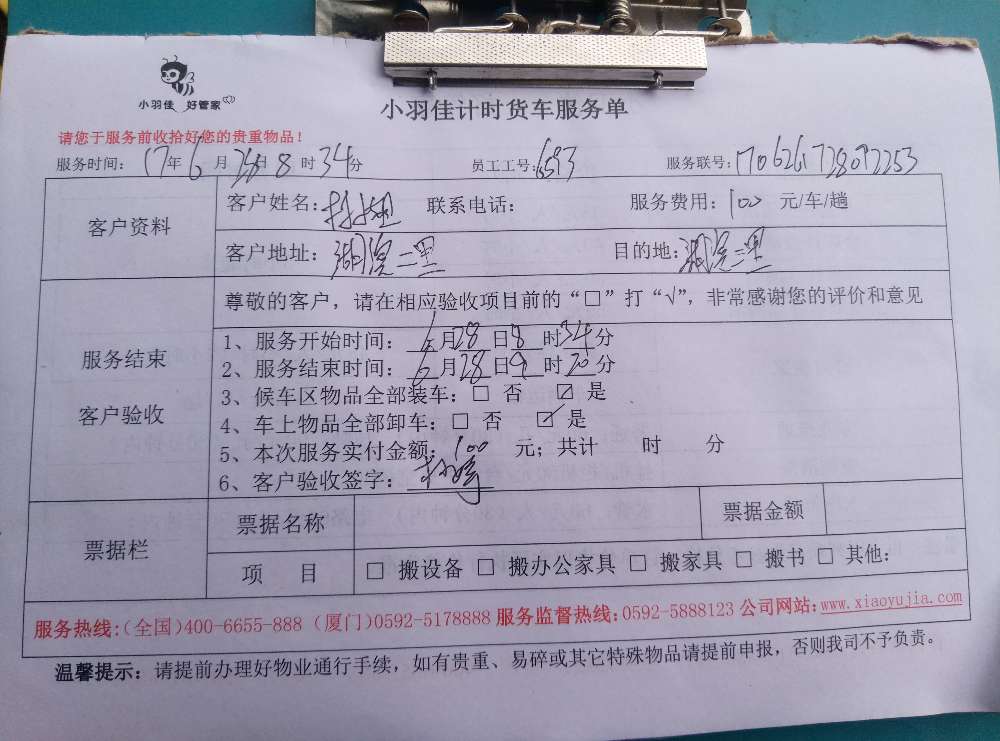 小羽佳 好管家
小羽佳计时货车服务单
请您于服务前收拾好您的贵重物品！
服务时间： 17年 6 月 28日 8 时 34分 员工工号： 6593 服务联号：
客户资料
客户姓名： 联系电话： 服务费用：100 元/车/趟
客户地址：湖滨二里 目的地：湖滨三里
服务结束
客户验收
尊敬的客户，请在相应验收项目前的“□”打“√”，非常感谢您的评价和意见
1、服务开始时间： 6月28日8 时34分
2、服务结束时间： 6月28日9 时20分
3、候车区物品全部装车：□ 否 ☑ 是
4、车上物品全部卸车：□ 否 ☑ 是
5、本次服务实付金额：100 元；共计 时 分
6、客户验收签字：
票据栏
票据名称 票据金额
项 目 □ 搬设备 □ 搬办公家具 □ 搬家具 □ 搬书 □ 其他：
服务热线：（全国）400-6655-888 （厦门）0592-5178888 服务监督热线：0592-5888123 公司网站：www.xiaoyujia.com
温馨提示：请提前办理好物业通行手续，如有贵重、易碎或其它特殊物品请提前申报，否则我司不予负责。